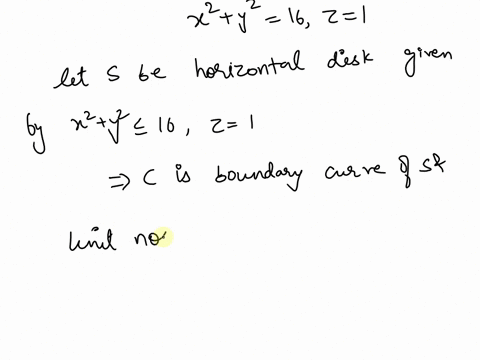 x²+y² = 16, z=1
let S be horizontal disk given
by x²+y² ≤ 16, z=1
⇒ C is boundary curve of S &
Unit no